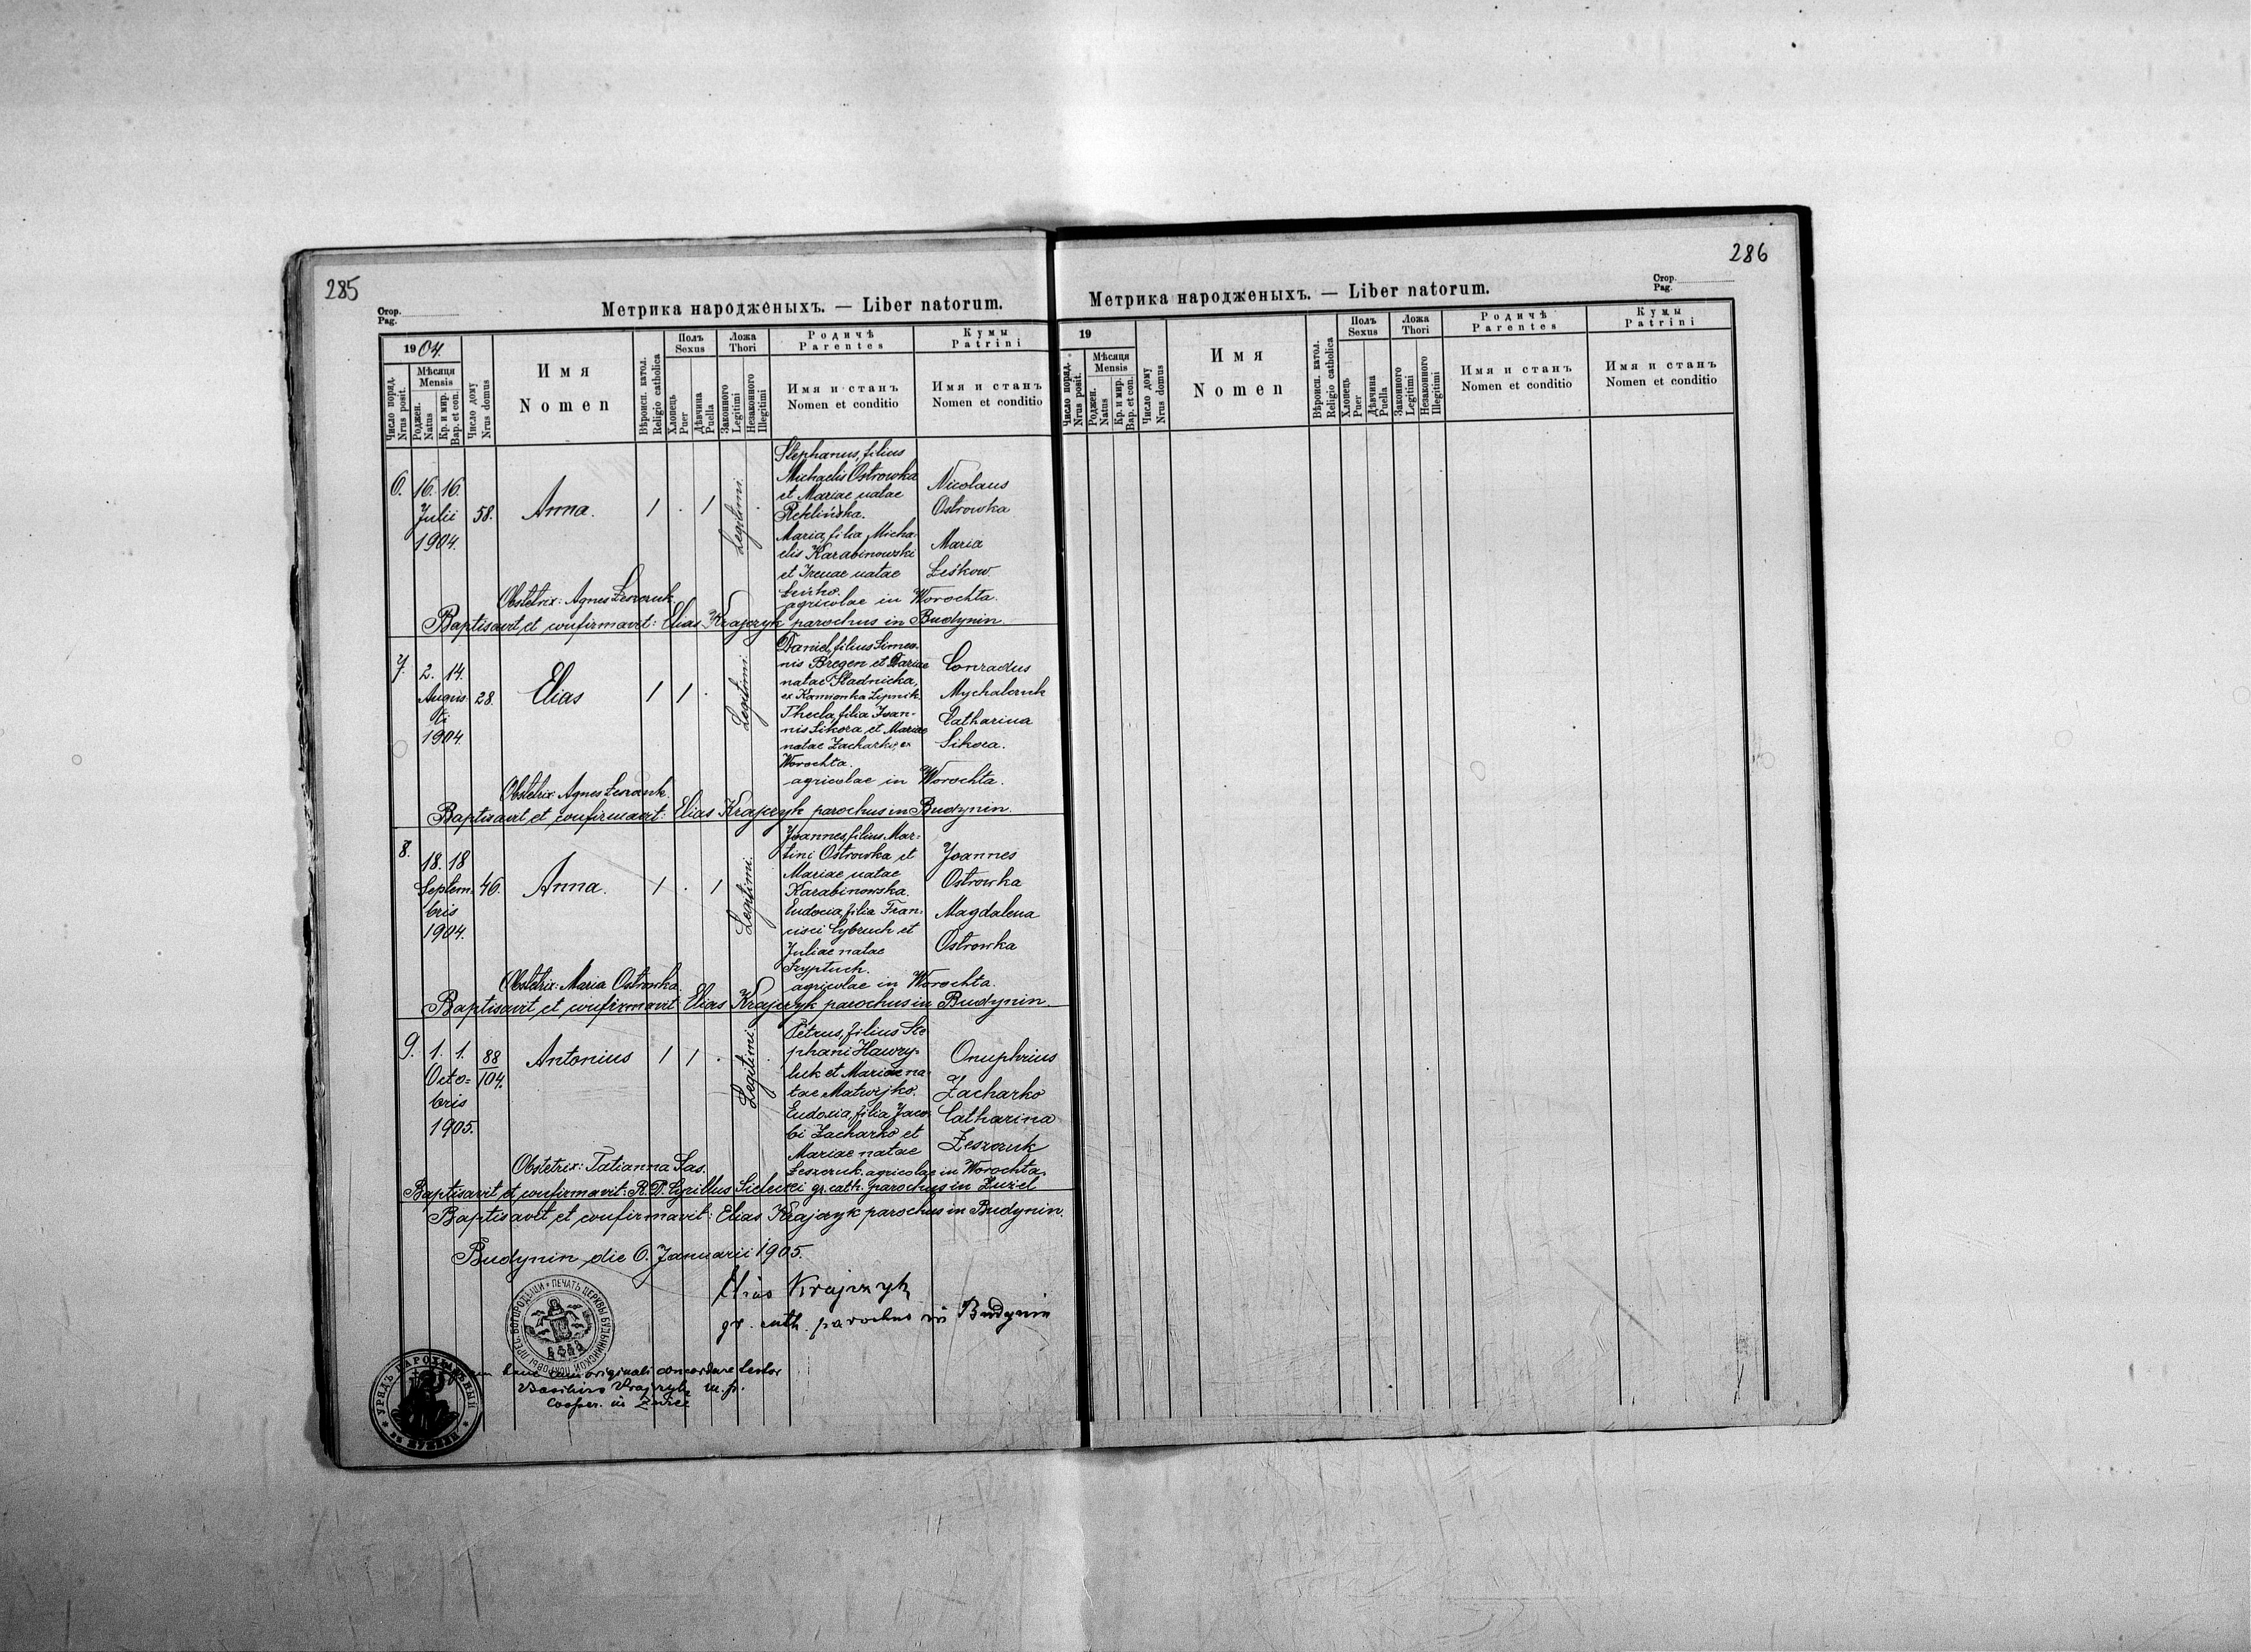 285
Стор.
Pag.
Метрика народженыхъ. — Liber natorum.
1904.
Число поряд.
Nrus posit.
Мѣсяця
Mensis
Роджен.
Natus
Кр. и мир.
Bap. et con.
Число дому
Nrus domus
Имя
Nomen
Вѣроисп. катол.
Religio catholica
Полъ
Sexus
Хлопець
Puer
Дѣвчина
Puella
Ложа
Thori
Законного
Legitimi
Незаконного
Illegitimi
Родичѣ
Parentes
Имя и станъ
Nomen et conditio
Кумы
Patrini
Имя и станъ
Nomen et conditio
6. 16. 16.
Julii
1904.
58.
Anna.
1 . 1
Legitimi.
Stephanus, filius
Michaelis Ostrowka
et Mariae natae
Reklińska.
Maria, filia Micha-
elis Karabinowski
et Irenae natae
agricolae in Worochta.
Nicolaus
Ostrowka
Maria
Leśkow
Obstetrix: Agnes Leszczuk
Baptisavit et confirmavit: Elias Krajczyk parochus in Budynin
7. 2. 14.
Augus-
ti
1904.
28.
Elias
1 1 .
Legitimi.
Daniel, filius Simeo-
nis Bregen et Dariae
natae Sładnicka,
ex Kamionka Lipnik
Thecla, filia Joan-
nis Sikora et Mariae
natae Zacharko, ex
Worochta.
agricolae in Worochta.
Conradus
Mychalczuk
Catharina
Sikora.
Obstetrix: Agnes Leszczuk.
Baptisavit et confirmavit: Elias Krajczyk parochus in Budynin.
8. 18. 18
Septem-
bris
1904.
46.
Anna.
1 . 1
Legitimi.
Joannes, filius Mar-
tini Ostrowka et
Mariae natae
Karabinowska.
Eudocia, filia Fran-
cisci Cybruch et
Juliae natae
Szyptuch.
agricolae in Worochta.
Joannes
Ostrowka
Magdalena
Ostrowka
Obstetrix: Maria Ostrowka.
Baptisavit et confirmavit Elias Krajczyk parochus in Budynin.
9. 1. 1.
Octo-
bris
1905.
88
104.
Antonius
1 1 .
Legitimi.
Petrus, filius Ste
phani Hawry-
luk et Mariae na-
tae Matwijko.
Eudoxia, filia Jaco-
bi Zacharko et
Mariae natae
Leszczuk. agricolae in Worochta.
Onuphrius
Zacharko
Catharina
Leszczuk
Obstetrix: Tatianna Sas.
Baptisavit et confirmavit: R. D. Cyrillus Sielecki gr. cath. parochus in Żużel
Baptisavit et confirmavit: Elias Krajczyk parochus in Budynin.
Budynin, die 6. Januarii 1905.
Elias Krajczyk
gr. cath. parochus in Budynin
cum originali concordare testor
Basilius Krajczyk m. p.
Cooper. in
286
Стор.
Pag.
Метрика народженыхъ. — Liber natorum.
19
Число поряд.
Nrus posit.
Мѣсяця
Mensis
Роджен.
Natus
Кр. и мир.
Bap. et con.
Число дому
Nrus domus
Имя
Nomen
Вѣроисп. катол.
Religio catholica
Полъ
Sexus
Хлопець
Puer
Дѣвчина
Puella
Ложа
Thori
Законного
Legitimi
Незаконного
Illegitimi
Родичѣ
Parentes
Имя и станъ
Nomen et conditio
Кумы
Patrini
Имя и станъ
Nomen et conditio